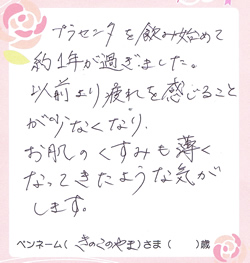 プラセンタを飲み始めて
約1年が過ぎました。
以前より疲れを感じること
が少なくなり、
お肌のくすみも薄く
なってきたような気が
します。
ペンネーム(きのこのやま)さま(　　)歳